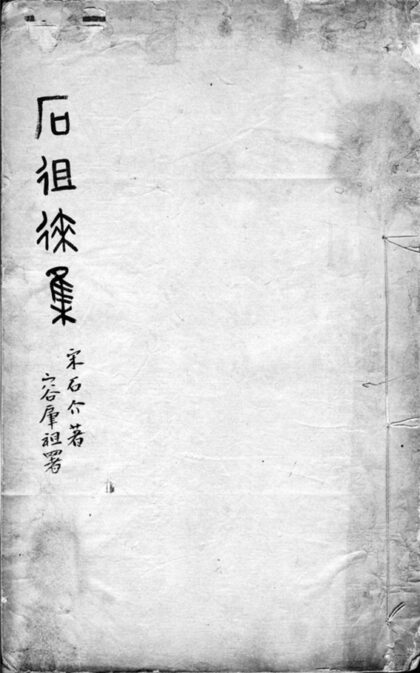 石徂徠集
宋石介著
容肇祖署